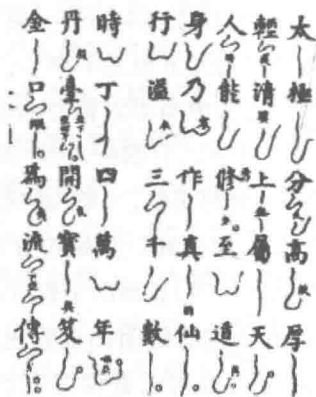 太極分高厚
輕清上屬天
人能修至道
身乃作真仙
行溢三千數
時丁四萬年
丹臺開寶笈
金口爲流傳